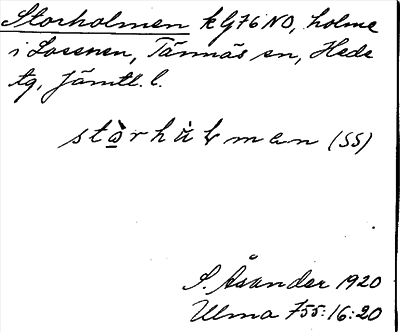 Storholmen k G76 NO, holme
i Lossnen, Tännäs sn, Hede
tg, Jämtl. l.
stò̲rhàɫman (SS)
S. Åsander 1920
Ulma 755:16:20